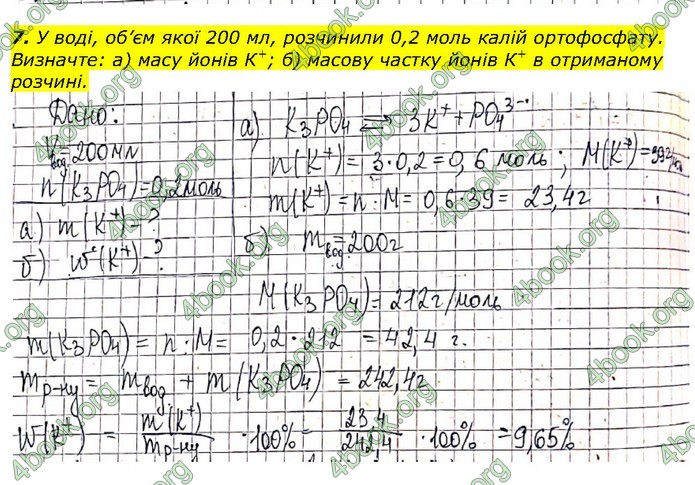 7. У воді, об’єм якої 200 мл, розчинили 0,2 моль калій ортофосфату.
Визначте: а) масу йонів К⁺; б) масову частку йонів К⁺ в отриманому
розчині.
Дано:
Vвод=200мл
n(K₃PO₄)=0,2моль
а) m(K⁺)-?
б) w(K⁺)-?
а) K₃PO₄ ⇄ 3K⁺+PO₄³⁻
n(K⁺)= 3·0,2=0,6 моль; M(K⁺)=39г/моль
m(K⁺)= n·M= 0,6·39= 23,4г
б) mвод=200г
M(K₃PO₄)=212г/моль
m(K₃PO₄)= n·M= 0,2·212 =42,4 г.
mр-ну= mвод + m(K₃PO₄) =242,4г
W(K⁺) = m(K⁺)/mр-ну ·100%= 23,4/242,4 ·100% =9,65%
4book.org